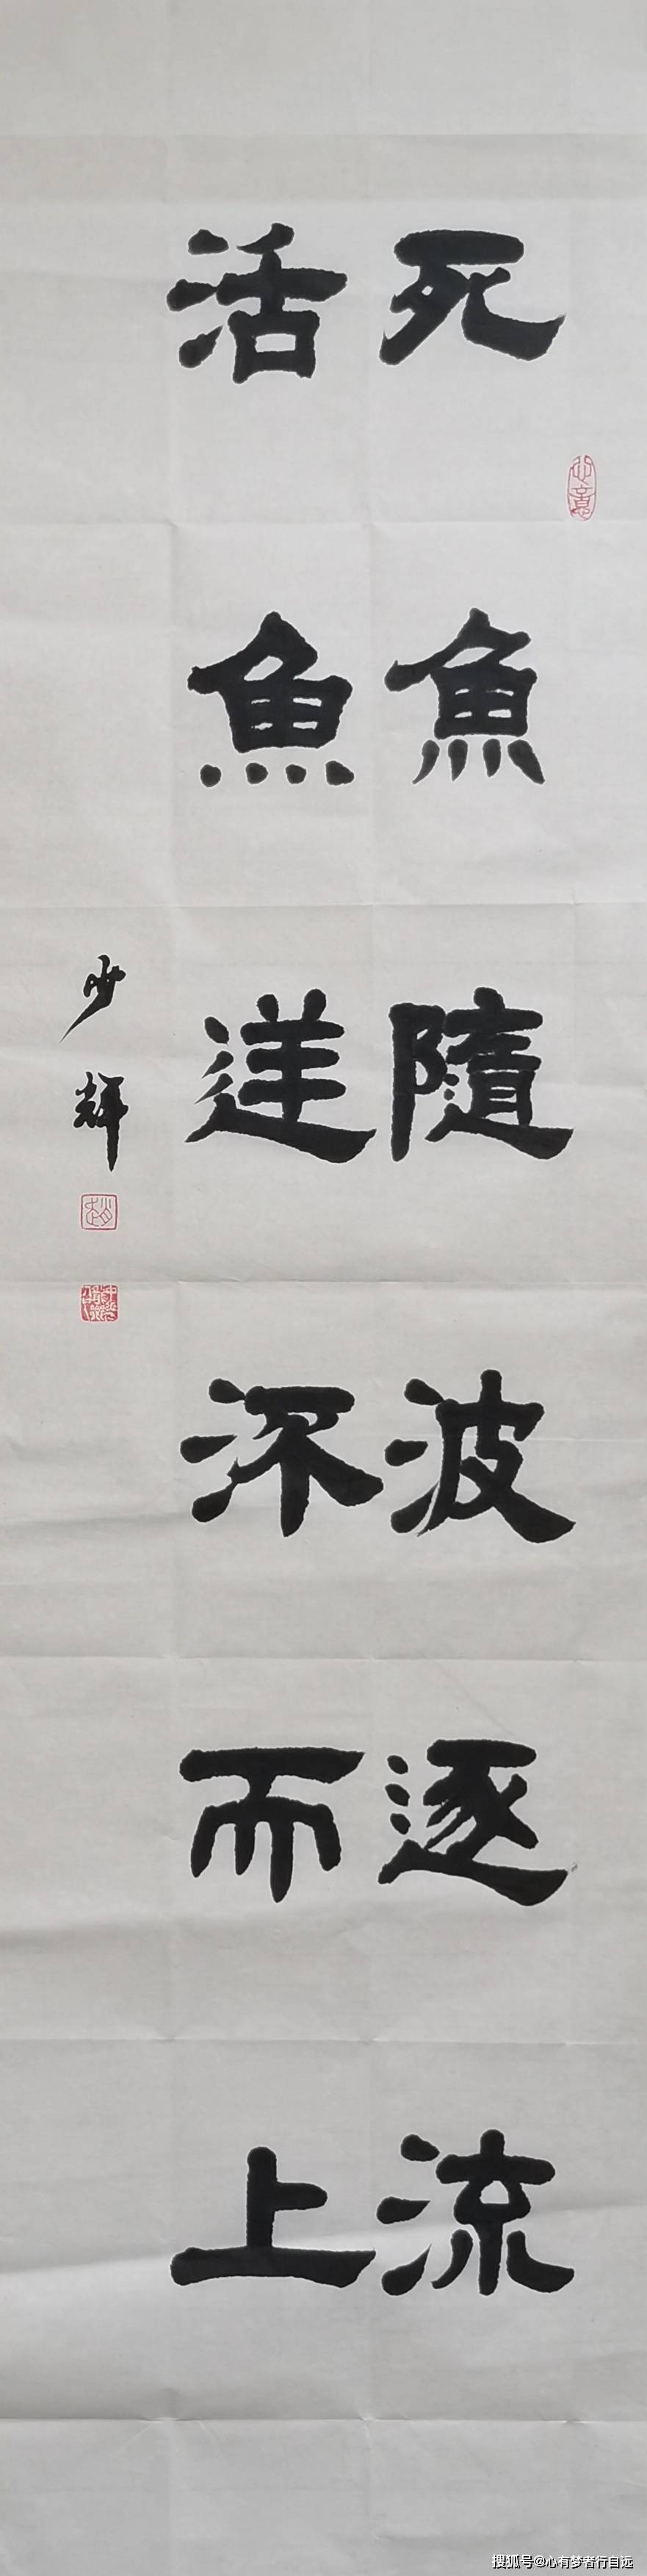 死魚隨波逐流
活魚逆㳅而上
少輝
搜狐号@心有梦者行自远